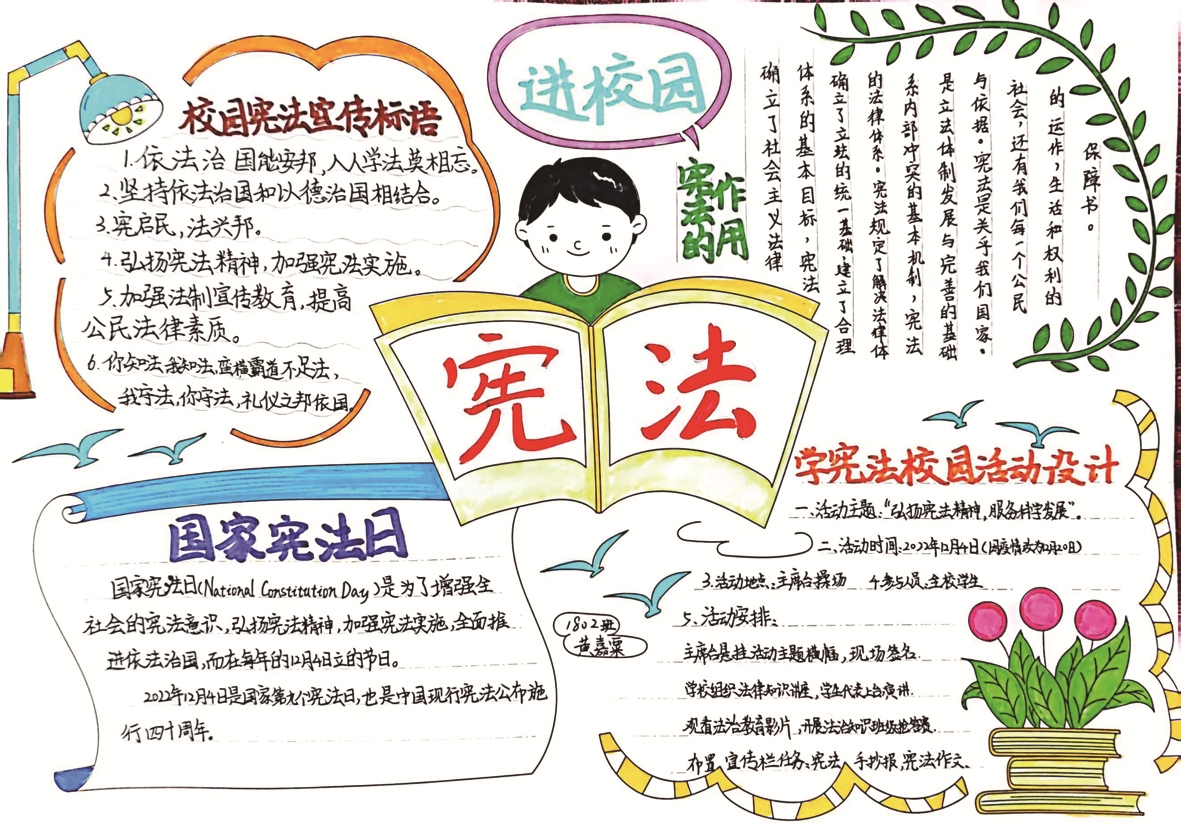 进校园
宪法
校园宪法宣传标语
1.依法治国能安邦,人人学法莫相忘。
2.坚持依法治国和以德治国相结合。
3.宪启民,法兴邦。
4.弘扬宪法精神,加强宪法实施。
5.加强法制宣传教育,提高
公民法律素质。
6.你知法,我知法,蛮横霸道不足法,
我守法,你守法,礼仪之邦依国。
宪法的
作用
确立了社会主义法律
体系的基本目标,宪法
确立了立法的统一基础,建立了合理
的法律体系。宪法规定了解决法律体
系内部冲突的基本机制,宪法
是立法体制发展与完善的基础
与依据。宪法是关乎我们国家。
社会,还有我们每一个公民
的运作,生活和权利的
保障书。
国家宪法日
国家宪法日(National Constitution Day)是为了增强全
社会的宪法意识,弘扬宪法精神,加强宪法实施,全面推
进依法治国,而在每年的12月4日立的节日。
2022年12月4日是国家第九个宪法日,也是中国现行宪法公布施
行四十周年。
1802班
黄嘉粟
学宪法校园活动设计
一、活动主题:“弘扬宪法精神,服务科学发展”。
二、活动时间:2022年12月4日(因疫情改为12月20日)
3.活动地点、主席台操场 4.参与人员、全校学生
5、活动安排:
主席台悬挂活动主题横幅,现场签名.
学校组织法律知识讲座,学生代表上台演讲.
观看法治教育影片,开展法治知识班级抢答赛.
布置 宣传栏任务、宪法、手抄报、宪法作文、